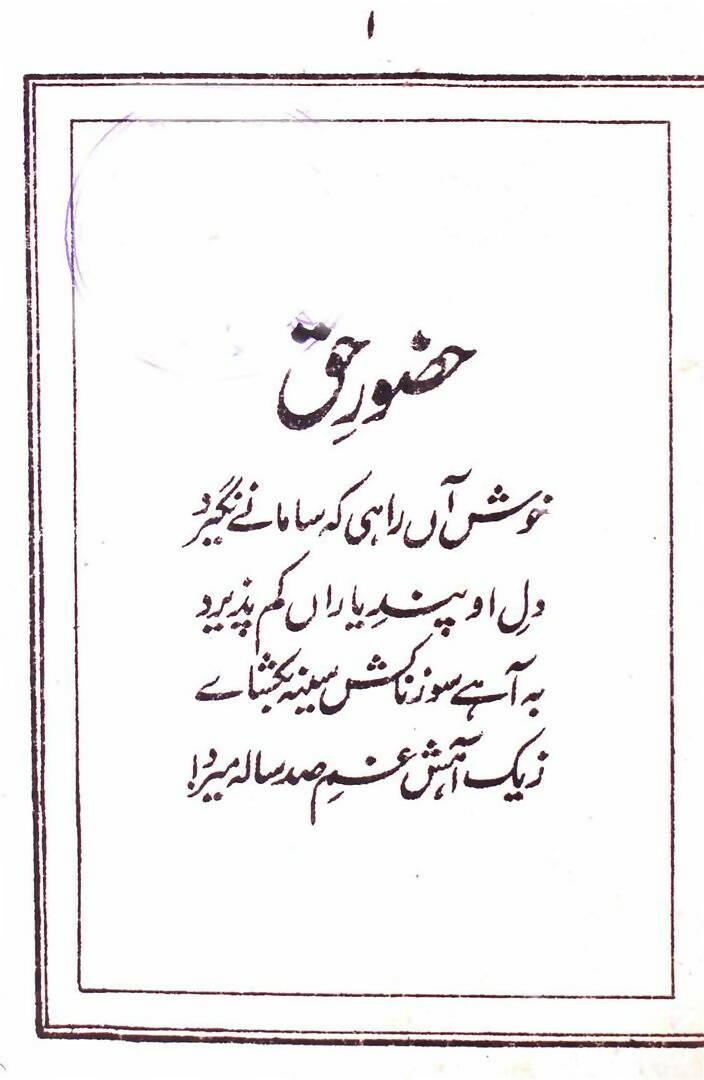 ۱
حضورِ حق
خوش آں راہی کہ سامانے نگیرد
دلِ او پندِ یاراں کم پذیرد
بہ آہے سوزناکش سینہ بکشاے
ز یک آہش غمِ صد سالہ میرد!